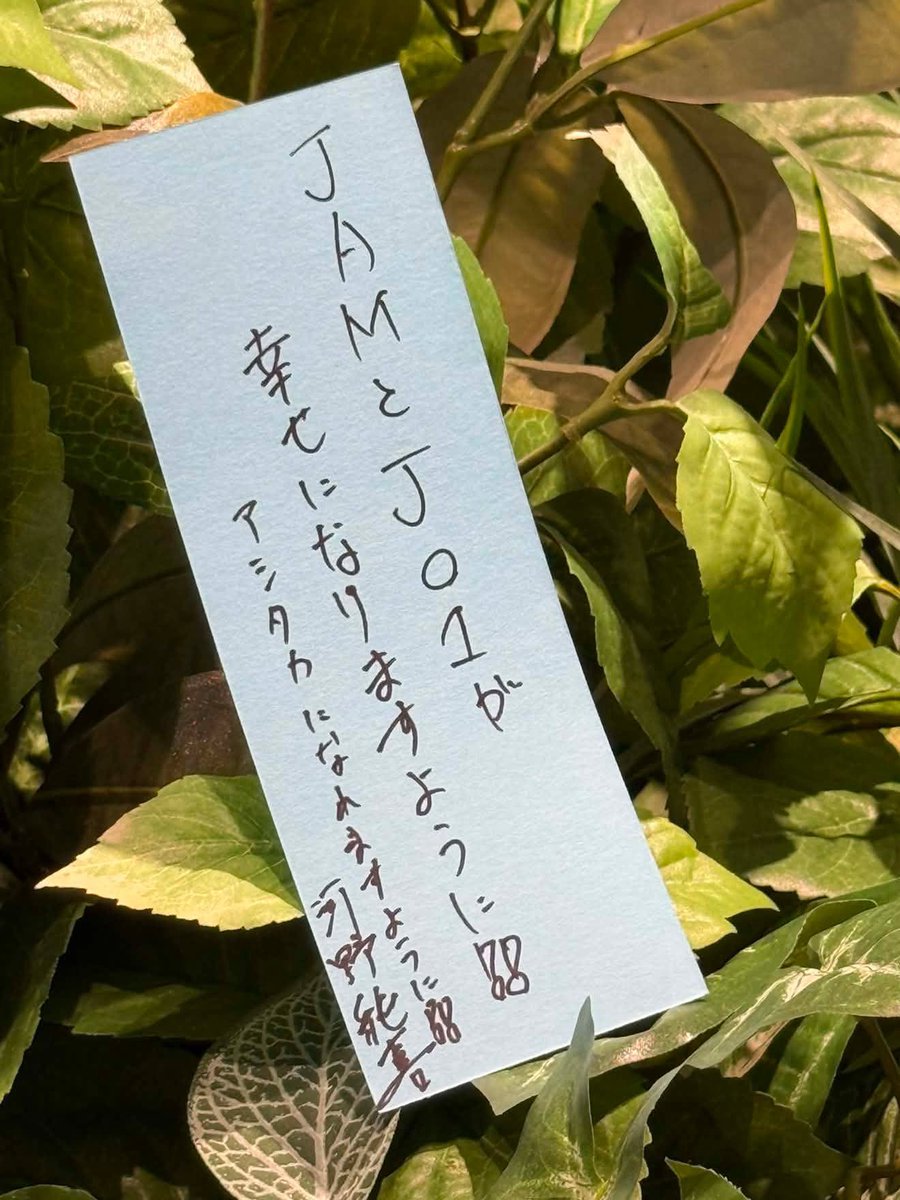 JAMとJO1が
幸せになりますように
アシタカになれますように
河野純喜